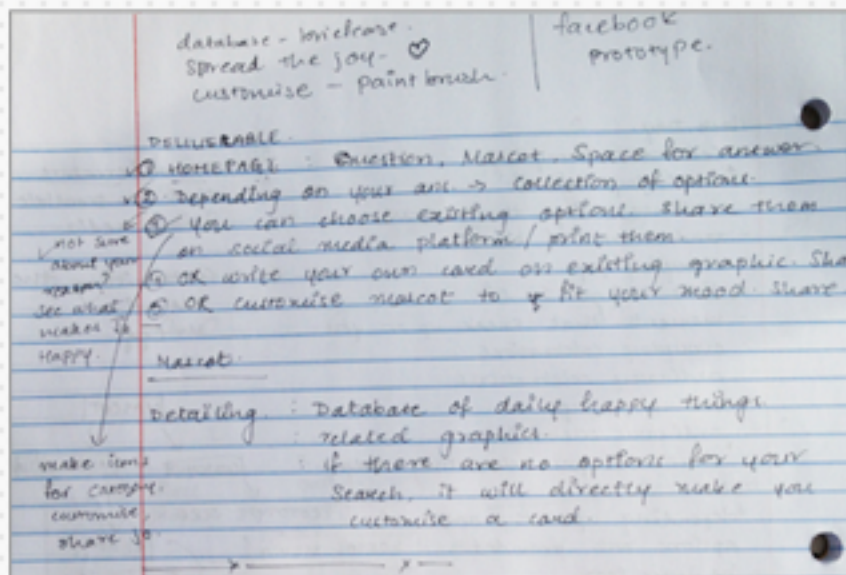 database - briefcase.
spread the joy - ♡
customise - paint brush.
facebook
prototype.
DELIVERABLE.
① HOMEPAGE : Question, Mascot, Space for answer.
② Depending on your ans → collection of options.
③ You can choose existing options. Share them
on social media platform / print them.
④ OR write your own card on existing graphic. Sha
⑤ OR customise mascot to fit your mood. Share
not sure
about your
see what
makes
Happy.
Mascot.
Detailing : Database of daily happy things.
: related graphics.
: if there are no options for your
Search, it will directly make you
customise a card.
make icons
for
customise,
share